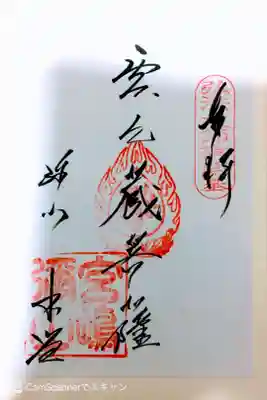 奉拝
虚空蔵菩薩
弥山 本堂
宮嶋
彌山
CamScannerでスキャン